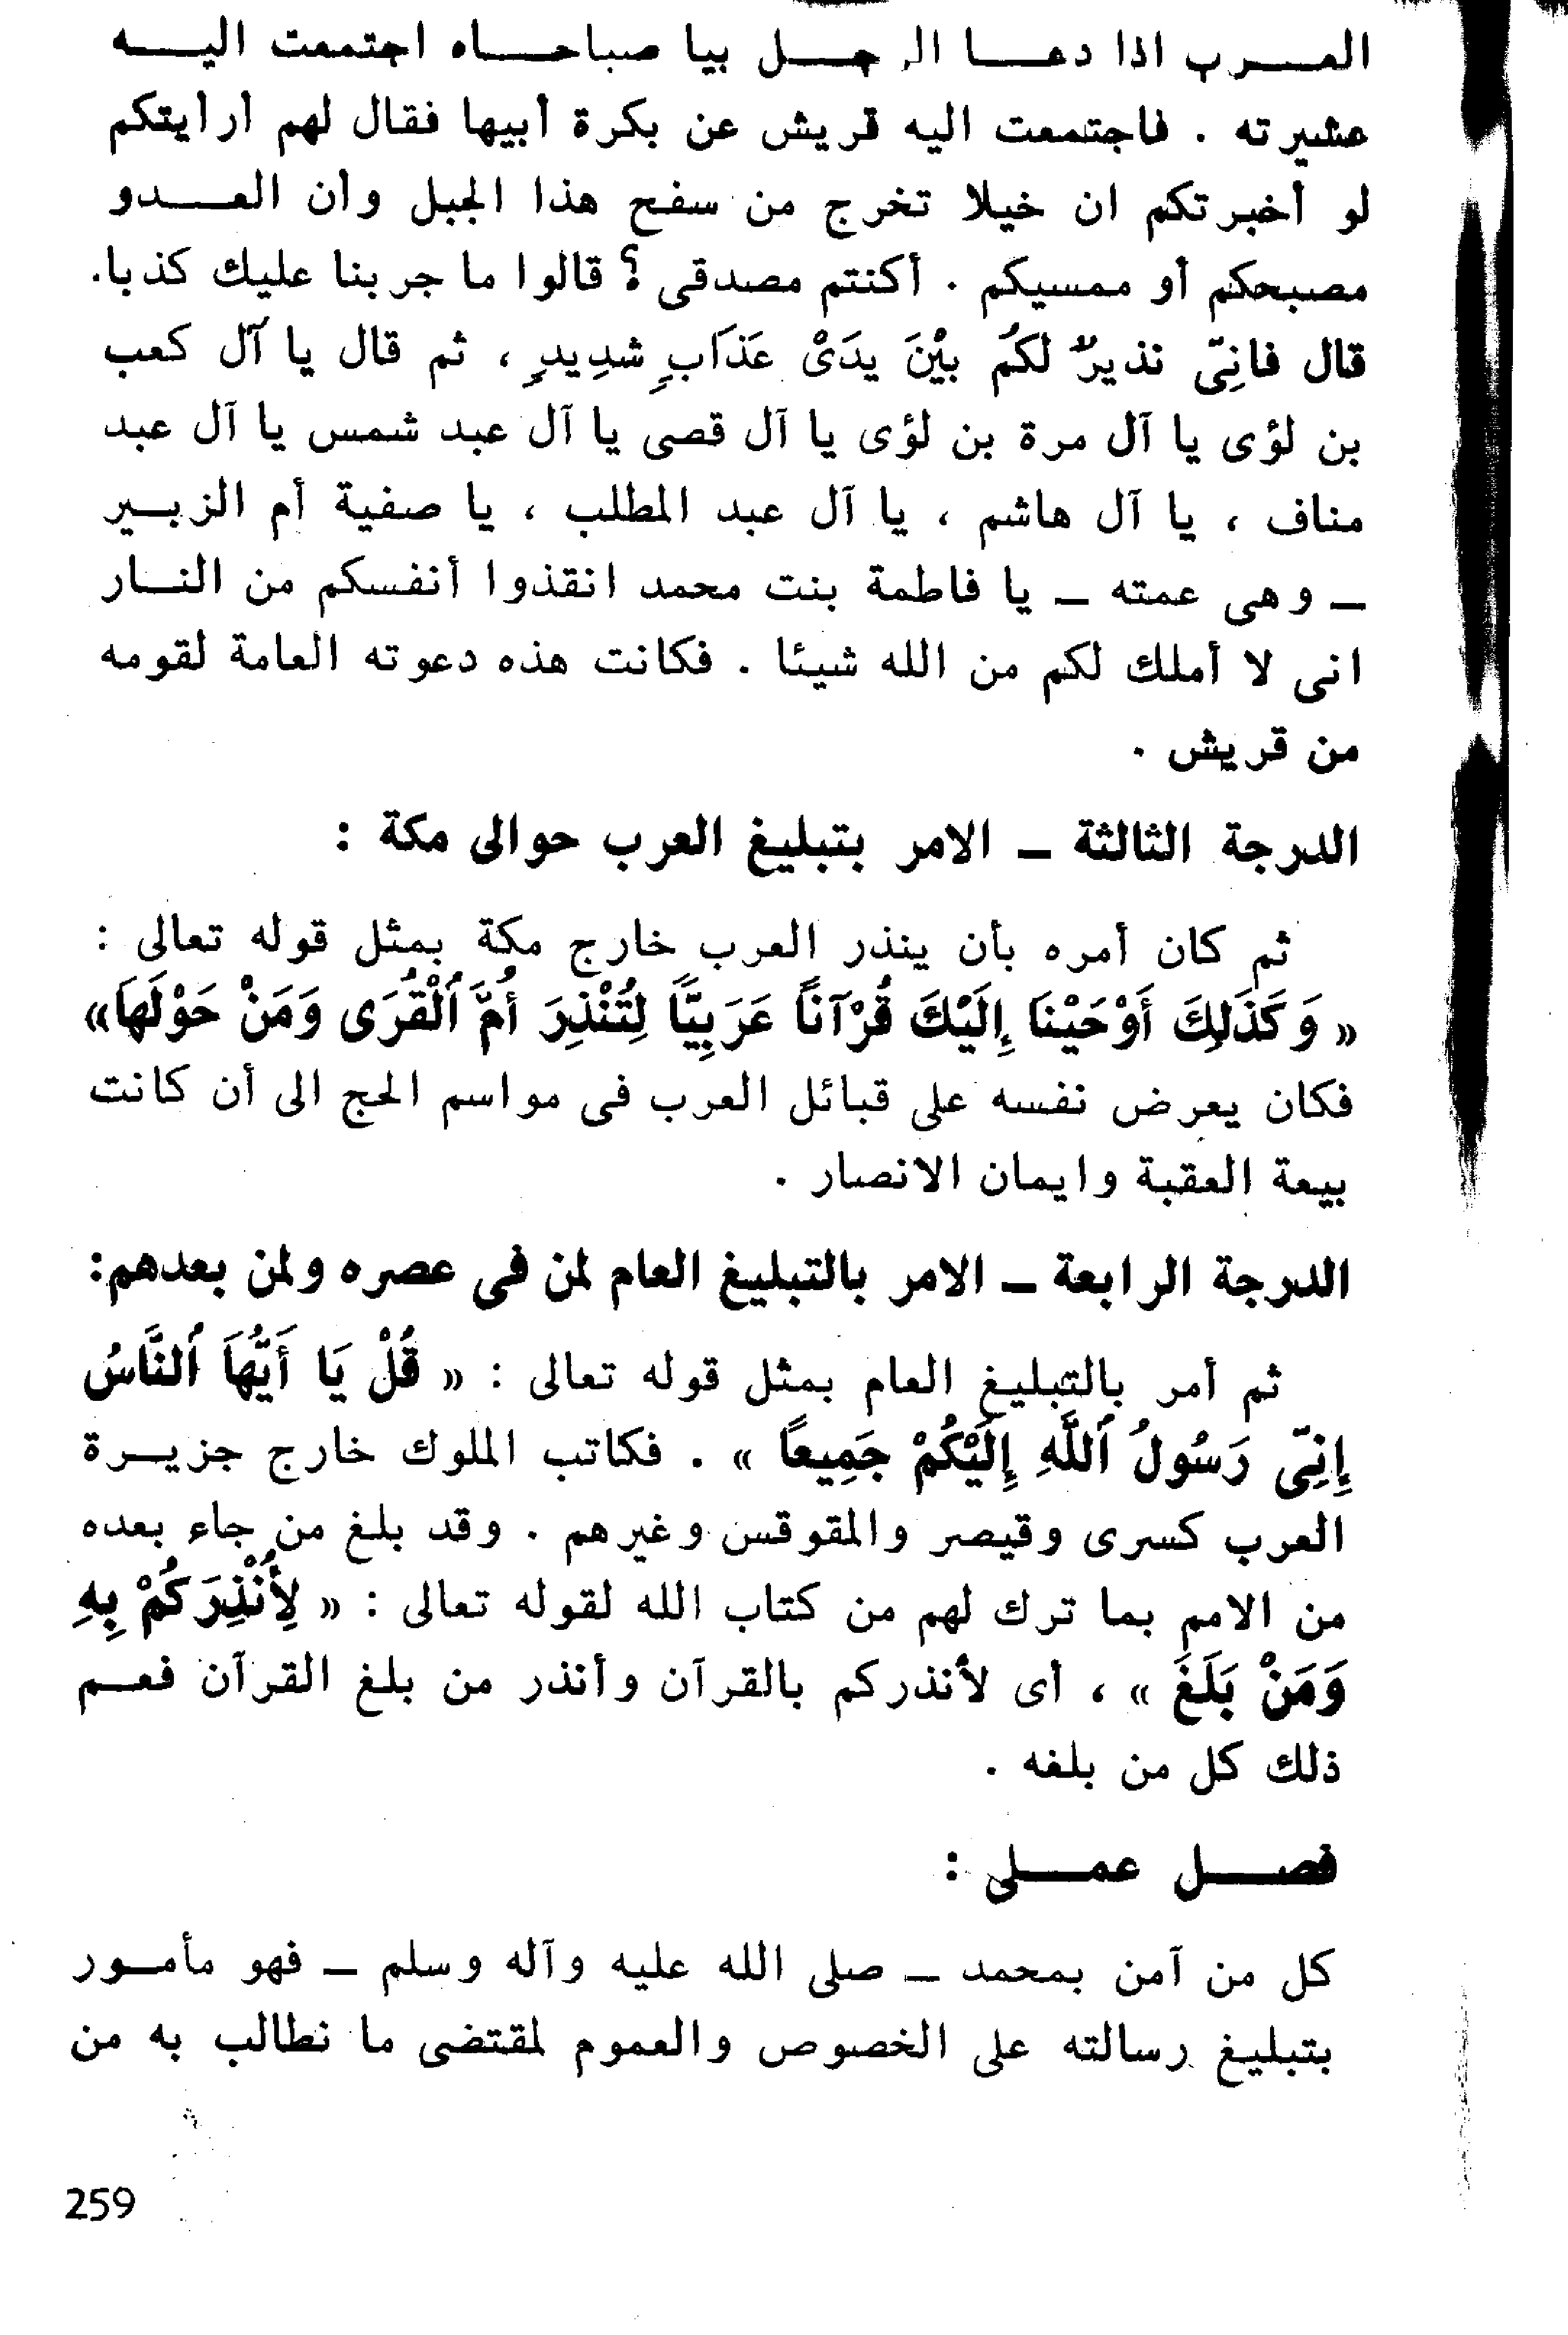 العـــرب اذا دعـــا الرجـــل بيا صباحـــاه اجتمعت اليـــه
عشيرته . فاجتمعت اليه قريش عن بكرة أبيها فقال لهم أرأيتكم
لو أخبرتكم ان خيلا تخرج من سفح هذا الجبل وأن العـــدو
مصبحكم أو ممسيكم . أكنتم مصدقى ؟ قالوا ما جربنا عليك كذبا.
قال فانِىّ نذيرٌ لكُم بيْنَ يدَىْ عَذَابٍ شدِيدٍ ، ثم قال يا آل كعب
بن لؤى يا آل مرة بن لؤى يا آل قصى يا آل عبد شمس يا آل عبد
مناف ، يا آل هاشم ، يا آل عبد المطلب ، يا صفية أم الزبـــير
ــ وهى عمته ــ يا فاطمة بنت محمد انقذوا أنفسكم من النـــار
انى لا أملك لكم من الله شيئا . فكانت هذه دعوته العامة لقومه
من قريش .
الدرجة الثالثة ــ الامر بتبليغ العرب حوالى مكة :
ثم كان أمره بأن ينذر العرب خارج مكة بمثل قوله تعالى :
« وَكَذَلِكَ أَوْحَيْنَا إِلَيْكَ قُرْآنًا عَرَبِيًّا لِتُنْذِرَ أُمَّ ٱلْقُرَى وَمَنْ حَوْلَهَا»
فكان يعرض نفسه على قبائل العرب فى مواسم الحج الى أن كانت
بيعة العقبة وايمان الانصار .
الدرجة الرابعة ــ الامر بالتبليغ العام لمن فى عصره ولمن بعدهم:
ثم أمر بالتبليغ العام بمثل قوله تعالى : « قُلْ يَا أَيُّهَا ٱلنَّاسُ
إِنِىّ رَسُولُ ٱللَّهِ إِلَيْكُمْ جَمِيعًا » . فكاتب الملوك خارج جزيـــرة
العرب كسرى وقيصر والمقوقس وغيرهم . وقد بلغ من جاء بعده
من الامم بما ترك لهم من كتاب الله لقوله تعالى : « لِأُنْذِرَكُمْ بِهِ
وَمَنْ بَلَغَ » ، أى لأنذركم بالقرآن وأنذر من بلغ القرآن فعـــم
ذلك كل من بلغه .
فصـــل عمـــلى :
كل من آمن بمحمد ــ صلى الله عليه وآله وسلم ــ فهو مأمـــور
بتبليغ رسالته على الخصوص والعموم لمقتضى ما نطالب به من
259